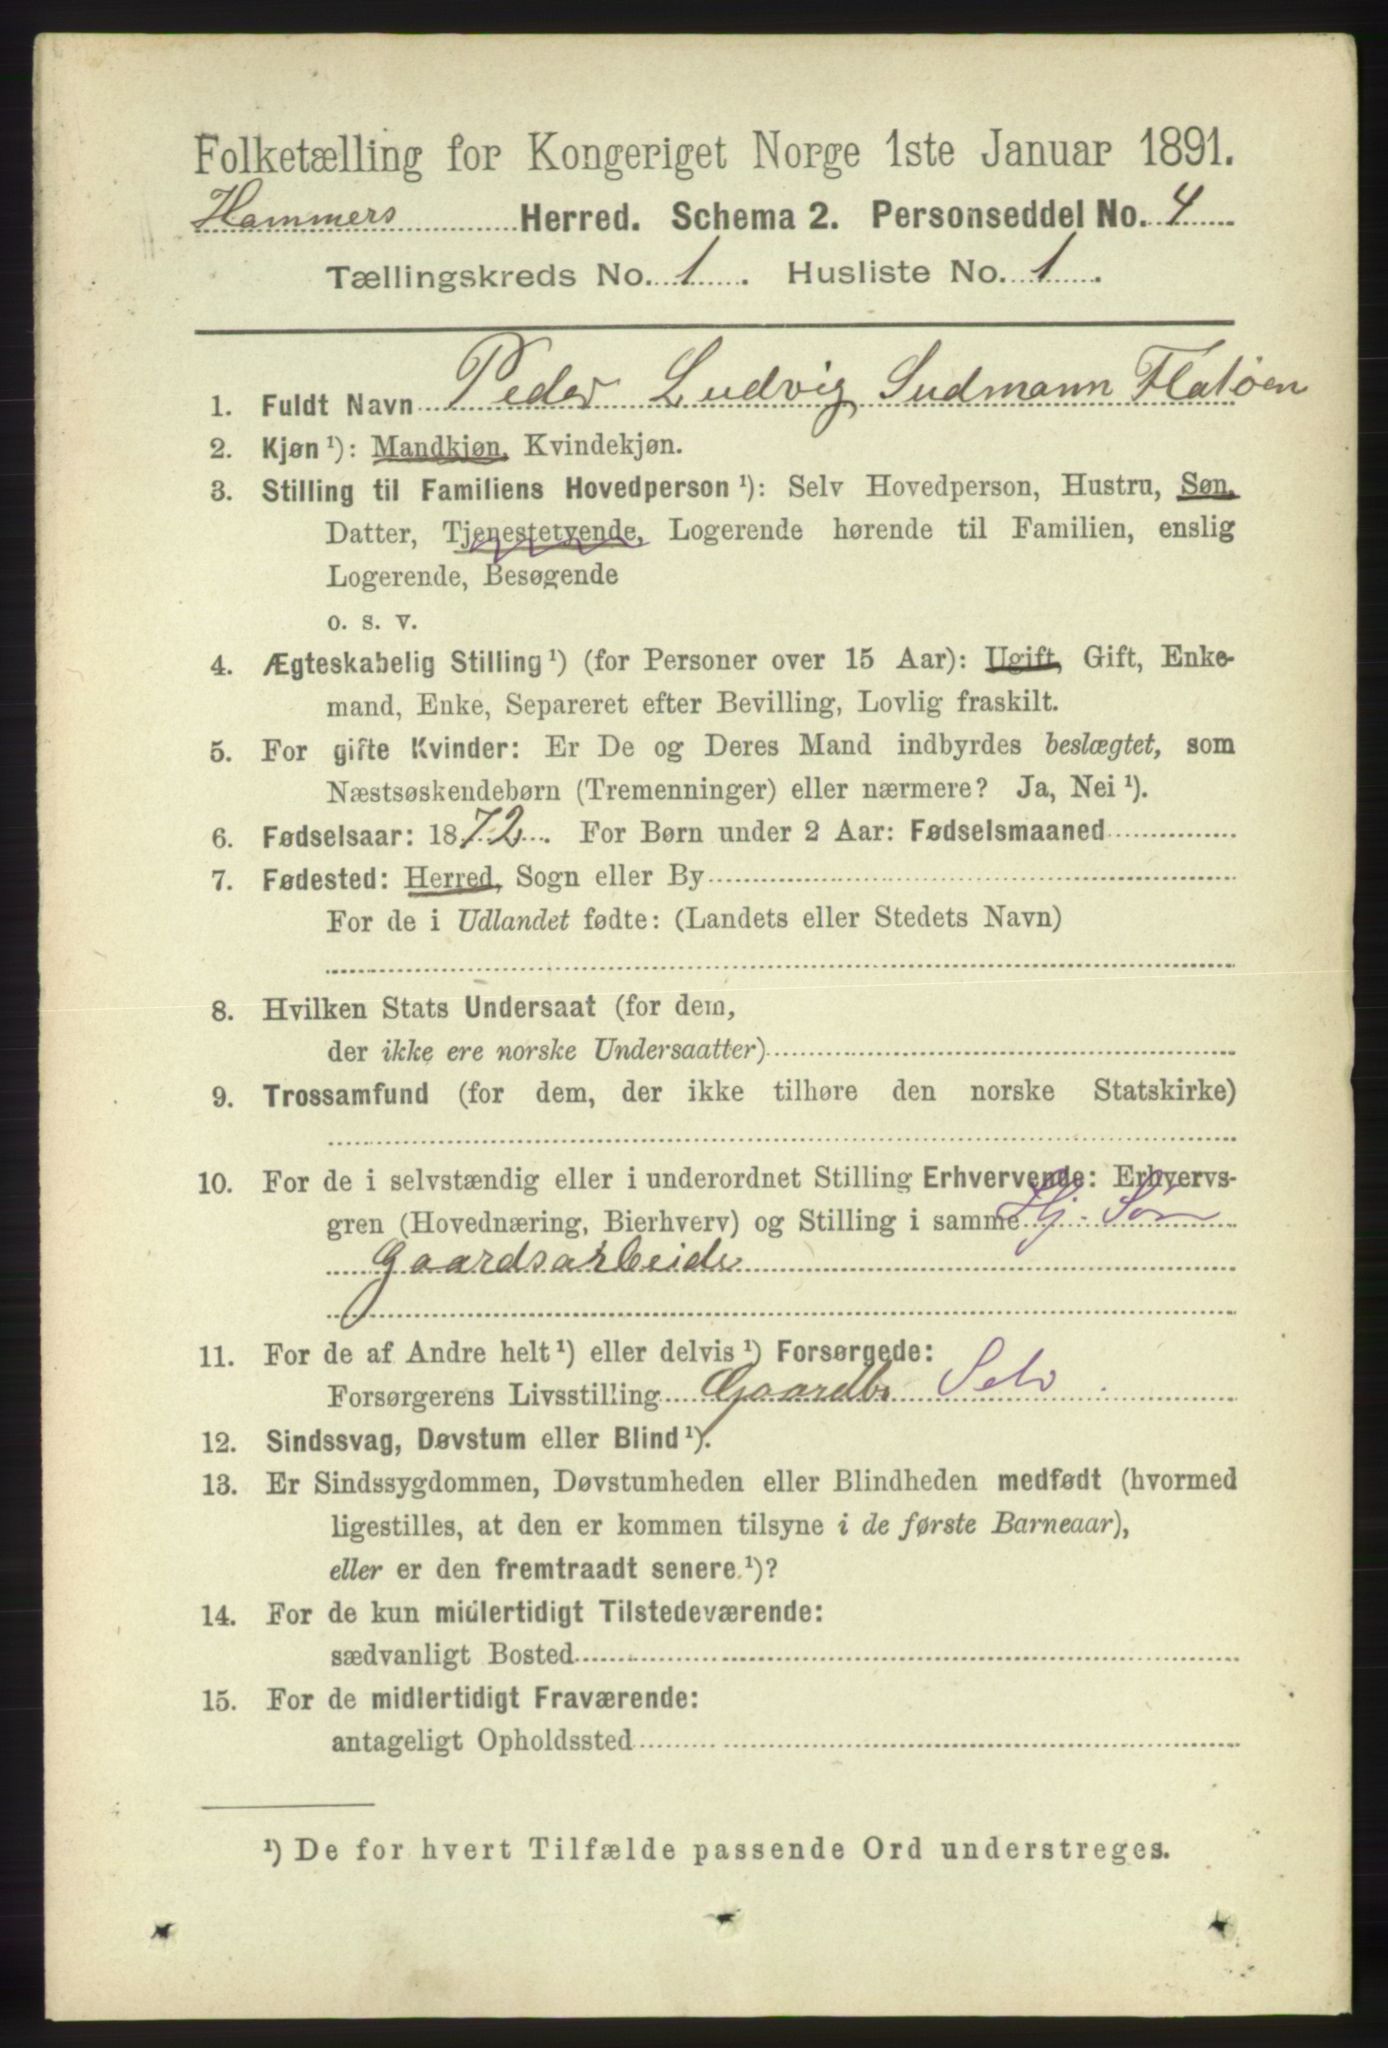 Folketælling for Kongeriget Norge 1ste Januar 1891.
Hammers Herred. Schema 2. Personseddel No. 4
Tællingskreds No. 1. Husliste No. 1.
1. Fuldt Navn Peder Ludvig Sudmann Flatøen
2. Kjøn¹): Mandkjøn, Kvindekjøn.
3. Stilling til Familiens Hovedperson¹): Selv Hovedperson, Hustru, Søn,
Datter, Tjenestetyende, Logerende hørende til Familien, enslig
Logerende, Besøgende
o. s. v.
4. Ægteskabelig Stilling¹) (for Personer over 15 Aar): Ugift, Gift, Enke-
mand, Enke, Separeret efter Bevilling, Lovlig fraskilt.
5. For gifte Kvinder: Er De og Deres Mand indbyrdes beslægtet, som
Næstsøskendebørn (Tremenninger) eller nærmere? Ja, Nei¹).
6. Fødselsaar: 1872. For Børn under 2 Aar: Fødselsmaaned
7. Fødested: Herred, Sogn eller By
For de i Udlandet fødte: (Landets eller Stedets Navn)
8. Hvilken Stats Undersaat (for dem,
der ikke ere norske Undersaatter)
9. Trossamfund (for dem, der ikke tilhøre den norske Statskirke)
10. For de i selvstændig eller i underordnet Stilling Erhvervende: Erhvervs-
gren (Hovednæring, Bierhverv) og Stilling i samme Hj. Søn
Gaardsarbeide
11. For de af Andre helt¹) eller delvis¹) Forsørgede:
Forsørgerens Livsstilling Gaardb. Selv
12. Sindssvag, Døvstum eller Blind¹).
13. Er Sindssygdommen, Døvstumheden eller Blindheden medfødt (hvormed
ligestilles, at den er kommen tilsyne i de første Barneaar),
eller er den fremtraadt senere.¹)?
14. For de kun midlertidigt Tilstedeværende:
sædvanligt Bosted
15. For de midlertidigt Fraværende:
antageligt Opholdssted
¹) De for hvert Tilfælde passende Ord understreges.